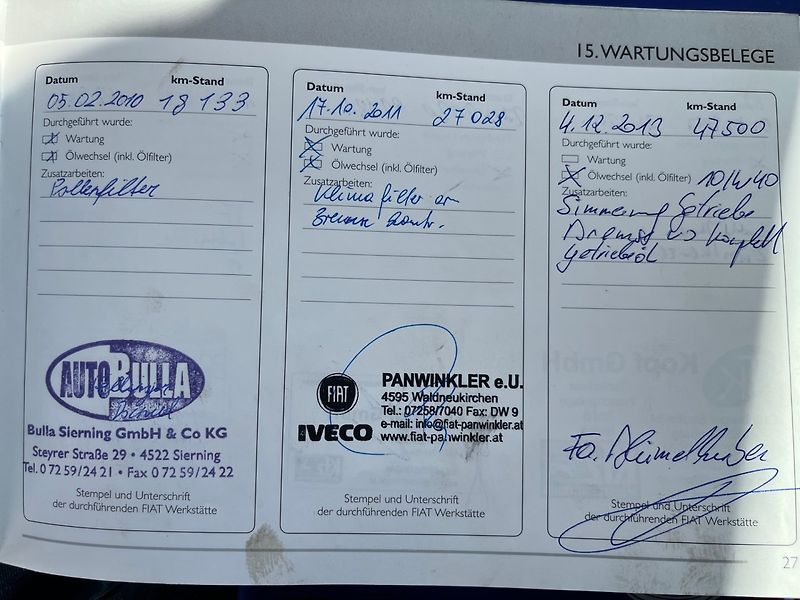 15. WARTUNGSBELEGE
Datum km-Stand
05.02.2010 18 133
Durchgeführt wurde:
Wartung
Ölwechsel (inkl. Ölfilter)
Zusatzarbeiten:
Pollenfilter
AUTO BULLA
Bulla Sierning GmbH & Co KG
Steyrer Straße 29 • 4522 Sierning
Tel. 0 72 59/24 21 • Fax 0 72 59/24 22
Stempel und Unterschrift
der durchführenden FIAT Werkstätte
Datum km-Stand
17.10.2011 27028
Durchgeführt wurde:
Wartung
Ölwechsel (inkl. Ölfilter)
Zusatzarbeiten:
Klimafilter
Bremse
FIAT
IVECO
PANWINKLER e.U.
4595 Waldneukirchen
Tel.: 07258/7040 Fax: DW 9
e-mail: info@fiat-panwinkler.at
www.fiat-panwinkler.at
Stempel und Unterschrift
der durchführenden FIAT Werkstätte
Datum km-Stand
4.12.2013 47500
Durchgeführt wurde:
Wartung
Ölwechsel (inkl. Ölfilter) 10/W40
Zusatzarbeiten:
Simmering Getriebe
komplett
Getriebeöl
Fa. Blümelhuber
Stempel und Unterschrift
der durchführenden FIAT Werkstätte
27